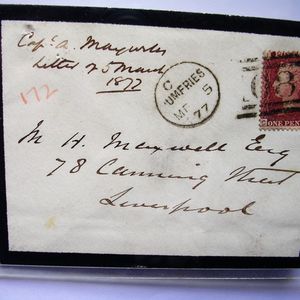 Letter of 5 March
1872
172
C
UMFRIES
MR 5
77
ONE PEN
M H. Maxwell Esq
78 Canning Street
Liverpool